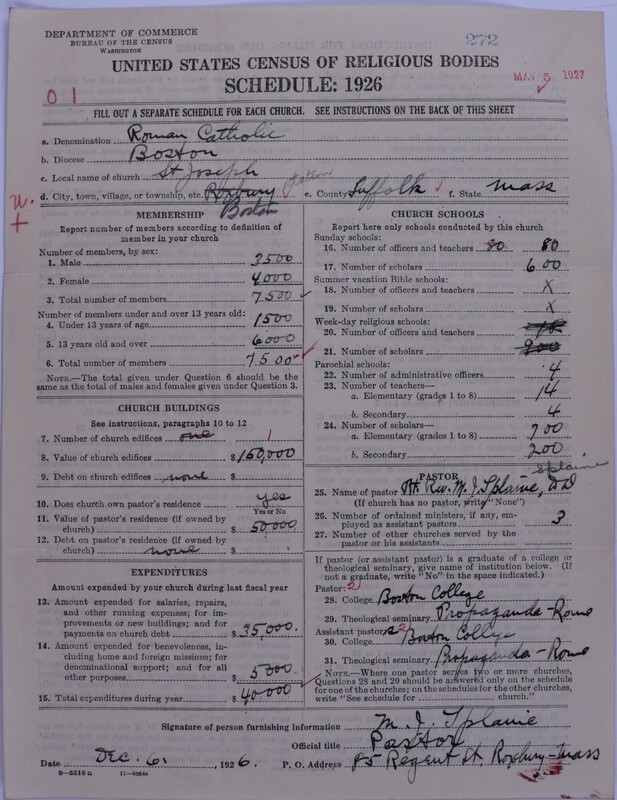 DEPARTMENT OF COMMERCE
BUREAU OF THE CENSUS
WASHINGTON
272
UNITED STATES CENSUS OF RELIGIOUS BODIES
SCHEDULE: 1926
MAY 5 1927
01
FILL OUT A SEPARATE SCHEDULE FOR EACH CHURCH. SEE INSTRUCTIONS ON THE BACK OF THIS SHEET
a. Denomination Roman Catholic
b. Diocese Boston
c. Local name of church St Joseph
d. City, town, village, or township, etc. Roxbury e. County Suffolk f. State Mass
Boston
MEMBERSHIP
Report number of members according to definition of
member in your church
Number of members, by sex:
1. Male 3500
2. Female 4000
3. Total number of members 7500
Number of members under and over 13 years old:
4. Under 13 years of age 1500
5. 13 years old and over 6000
6. Total number of members 7500
NOTE.—The total given under Question 6 should be the
same as the total of males and females given under Question 3.
CHURCH BUILDINGS
See instructions, paragraphs 10 to 12
7. Number of church edifices one 1
8. Value of church edifices $150,000
9. Debt on church edifices none $
10. Does church own pastor's residence yes
Yes or No
11. Value of pastor's residence (if owned by
church) $50000
12. Debt on pastor's residence (if owned by
church) none $
EXPENDITURES
Amount expended by your church during last fiscal year
13. Amount expended for salaries, repairs,
and other running expenses; for im-
provements or new buildings; and for
payments on church debt $35,000.
14. Amount expended for benevolences,
including home and foreign missions; for
denominational support; and for all
other purposes $5000
15. Total expenditures during year $40000
CHURCH SCHOOLS
Report here only schools conducted by this church
Sunday schools:
16. Number of officers and teachers 80 80
17. Number of scholars 600
Summer vacation Bible schools:
18. Number of officers and teachers X
19. Number of scholars X
Week-day religious schools:
20. Number of officers and teachers
21. Number of scholars 900
Parochial schools:
22. Number of administrative officers 4
23. Number of teachers—
a. Elementary (grades 1 to 8) 14
b. Secondary 4
24. Number of scholars—
a. Elementary (grades 1 to 8) 700
b. Secondary 200
Splaine
PASTOR
25. Name of pastor Rt Rev. M. J. Splaine, D.D.
(If church has no pastor, write "None")
26. Number of ordained ministers, if any, em-
ployed as assistant pastors 3
27. Number of other churches served by the
pastor or his assistants
If pastor (or assistant pastor) is a graduate of a college or
theological seminary, give name of institution below. (If
not a graduate, write "No" in the space indicated.)
Pastor: 2
28. College Boston College
29. Theological seminary Propaganda-Rome
Assistant pastor: 2
30. College Boston College
31. Theological seminary Propaganda-Rome
NOTE.—Where one pastor serves two or more churches,
Questions 28 and 29 should be answered only on the schedule
for one of the churches; on the schedules for the other churches,
write "See schedule for church."
Signature of person furnishing information M. J. Splaine
Official title Pastor
Date Dec. 6, 1926. P. O. Address 85 Regent St. Roxbury-Mass
8-5518a 11-9054a